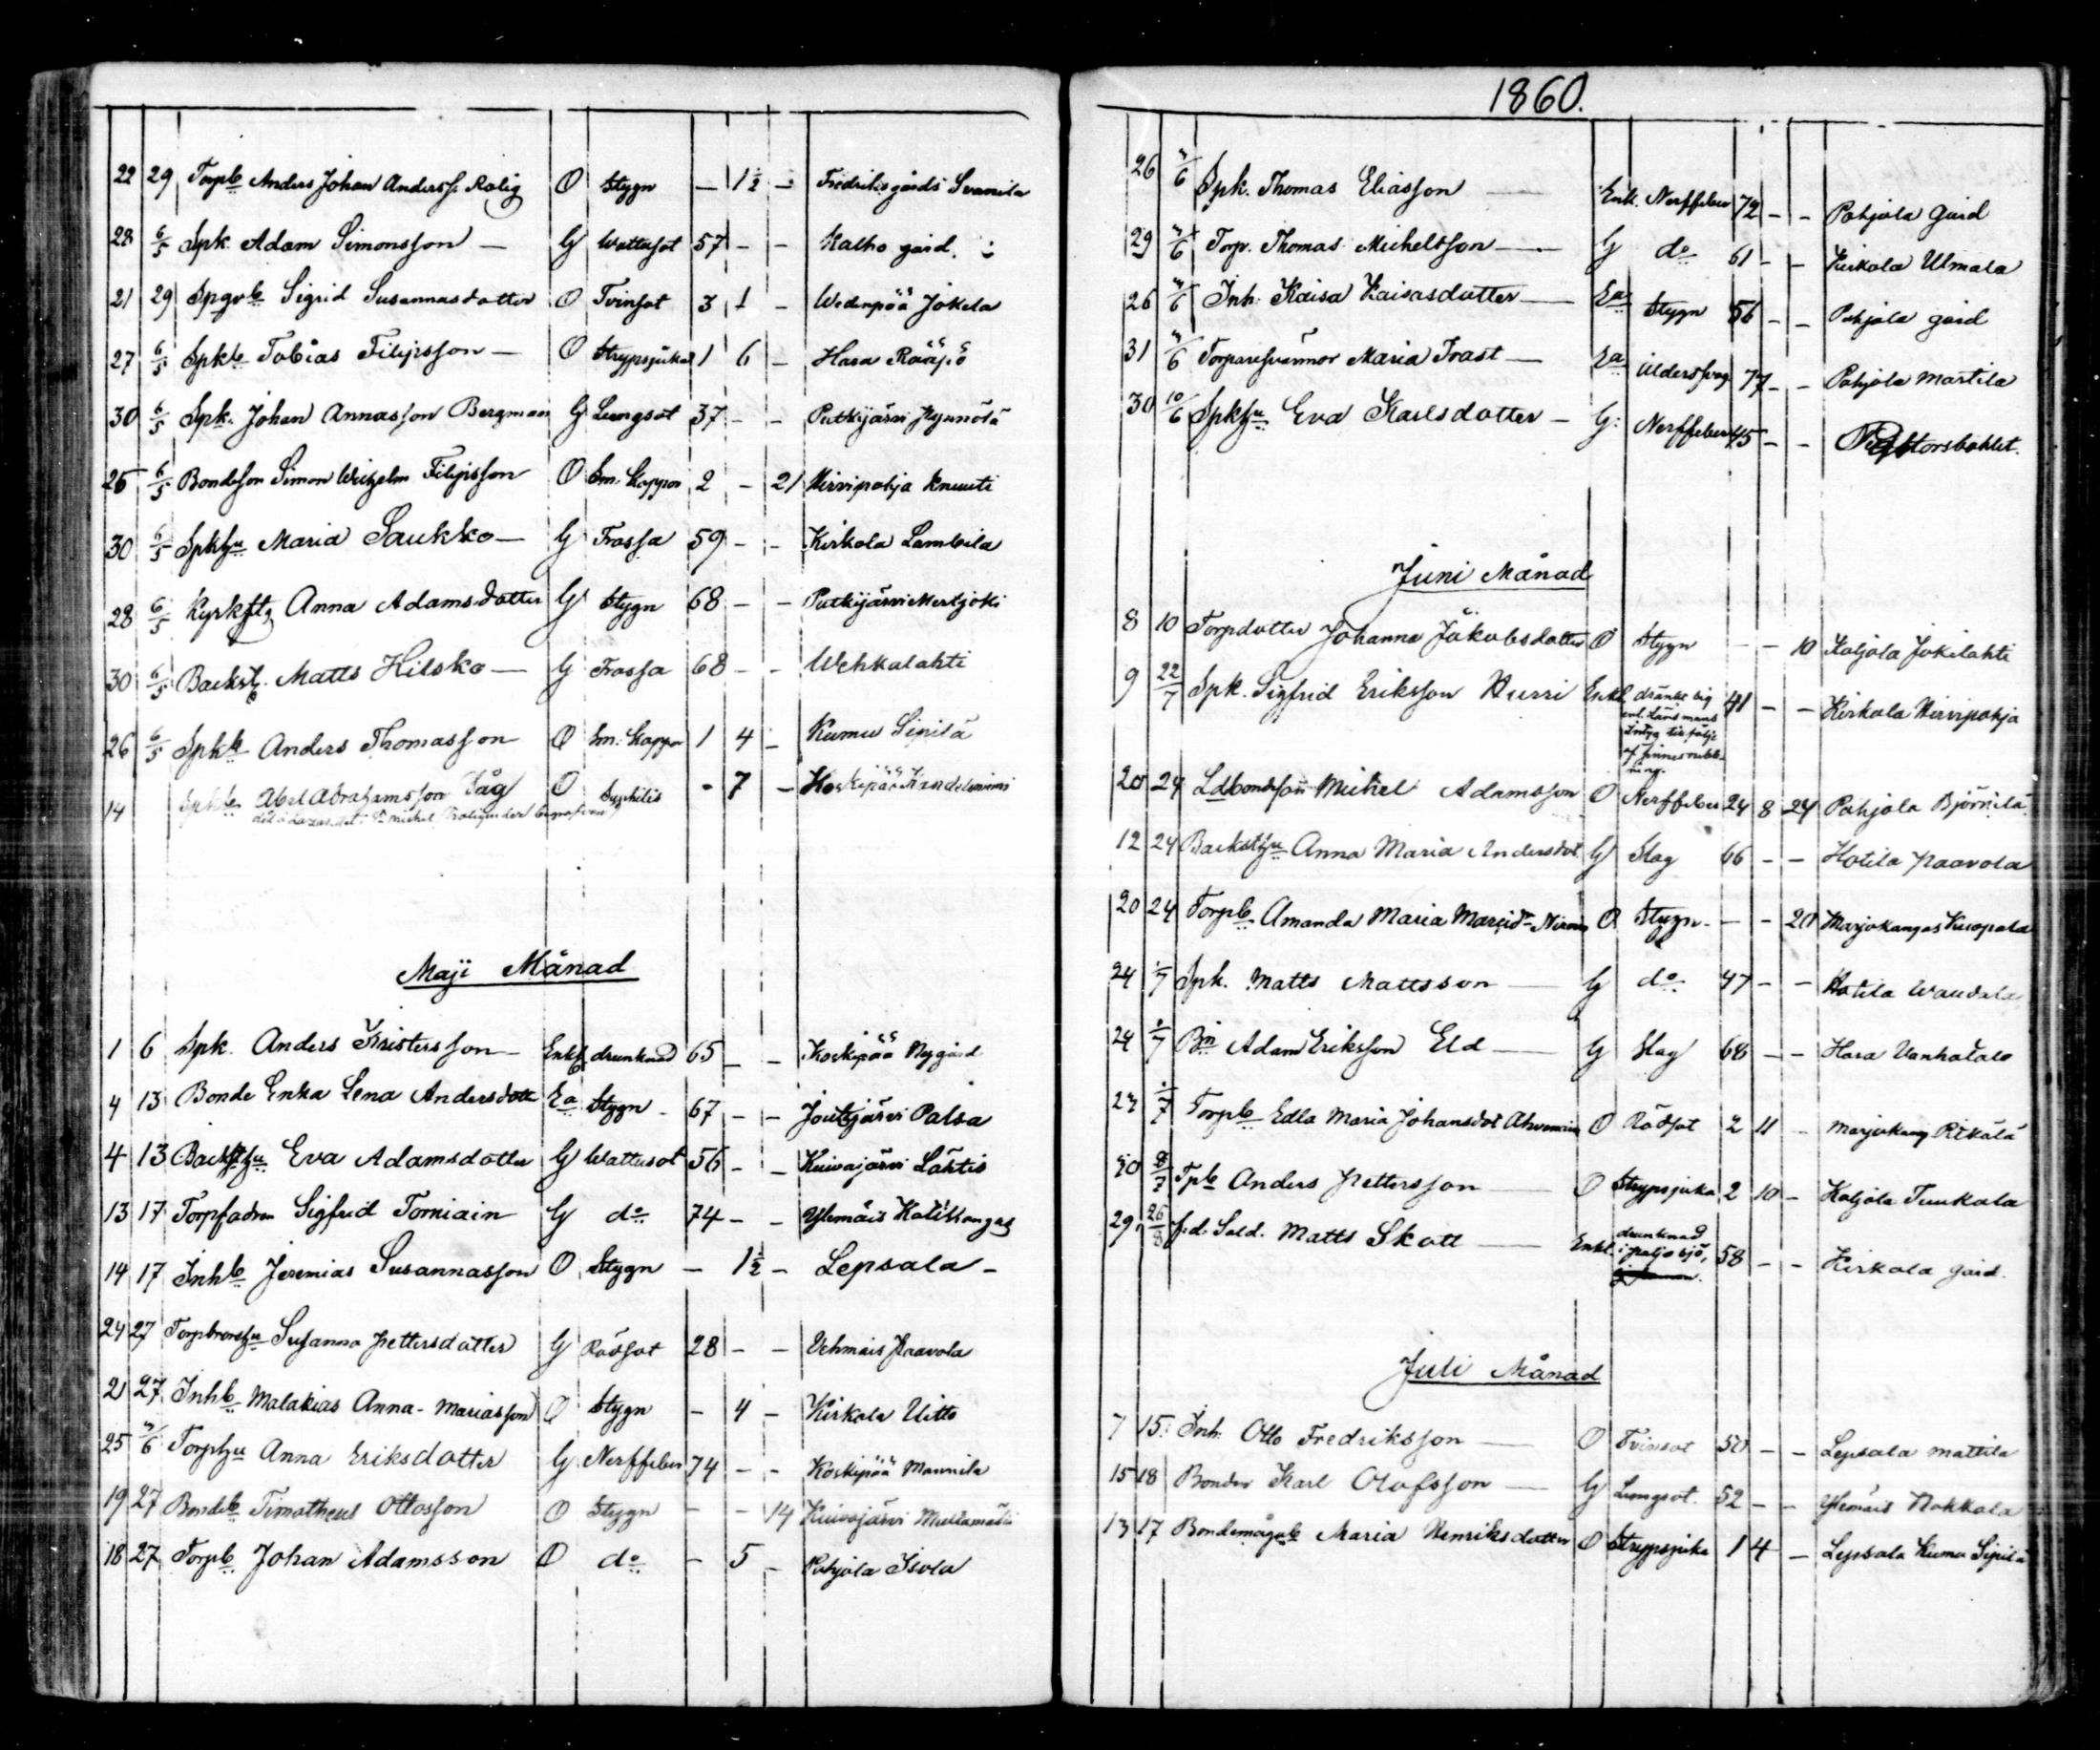 22 29 Torpb Anders Johan Anderss. Rolig O Stygn — 1½ — Fredriksgårds Svanila
28 6/5 Spk Adam Simonsson — G Wattusot 57 — — Kalho gård.
21 29 Spgvb Sigrid Susannasdotter O Tvinsot 3 1 — Wedenpää Jokela
27 6/5 Spkb Tobias Filipsson — O Strypsjukal 1 6 — Hara Rääsjö
30 6/5 Spk. Johan Annasson Bergman G Lungsot 37 — — Putkijärvi
26 6/5 Bondeson Simon Wilhelm Filipsson O Sm. Koppor 2 — 21 Hirvipohja Knuuti
30 6/5 Spkhu Maria Saukko — G Frossa 59 — — Kirkola Lambila
28 6/5 Anna Adamsdotter G Stygn 68 — — Putkijärvi Mertjoki
30 6/5 Backst. Matts Hilska — G Frossa 68 — — Wehkalahti
26 6/5 Spkb Anders Thomasson O Sm. Koppor 1 4 — Kumu Sipilä
14 Spkb Abel Abrahamsson Låg O Syphilis - 7 — Koskipää
Maji Månad
1 6 Spk. Anders Kristersson — Enkl drunknad 65 — — Koskipää Nygård
4 13 Bonde Enka Lena Andersdotter Ea Stygn 67 — — Joutsjärvi Palsa
4 13 Backsthu Eva Adamsdotter G Wattusot 56 — — Kuivajärvi Lähtis
13 17 Torpfadren Sigfrid Torniain G do 74 — — Ylemäis Kotikangas
14 17 Inhb Jeremias Susannasson O Stygn — 1½ — Lepsala —
24 27 Susanna Pettersdotter G Rödsot 28 — — Vehmais Paavola
21 27 Inhb Malakias Anna-Mariasson O Stygn — 4 — Kirkola Uitto
25 /6 Torphu Anna Eriksdotter G Nerffeber 74 — — Koskipää Mannila
19 27 Bondeb Timotheus Ottosson O Stygn — — 14 Kuivajärvi
18 27 Torpb Johan Adamsson O do — 5 — Pohjola Isola
1860.
26 /6 Spk. Thomas Eliasson — Enkl. Nerffeber 72 — — Pohjola gård
29 /6 Torp. Thomas Michelsson — G do 61 — — Kirkola Ulmala
26 /6 Inh: Kaisa Kaisasdotter — Ea Stygn 56 — — Pohjola gård
31 /6 Torparesvärmor Maria Trast — Ea Ålderssvag 77 — — Pohjola Martila
30 10/6 Spkhu Eva Karlsdotter — G: Nerffeber 45 — —
Juni Månad
8 10 Torpdotter Johanna Jakobsdotter O Stygn — — 10 Koljola Jokilahti
9 22/7 Spk. Sigfrid Eriksson Hurri Enkl dränkt sig 41 — — Kirkola Hirvipohja
enl. Länsmans
Intyg till följe
af sinnesrubb-
ning.
20 24 Ldbondeson Michel Adamsson O Nerffeber 24 8 24 Pohjola Björnilä
12 24 Backsthu Anna Maria Andersdot. G Slag 66 — — Hotila Paavola
20 24 Torpb. Amanda Maria O Stygn — — 20 Marjokangas Kuopala
24 /7 Spk. Matts Mattsson — G do 47 — — Hotila
24 /7 Bn Adam Eriksson Eld — G Slag 68 — — Hara Vanhatalo
27 /7 Torpb Edla Maria Johansdot O Rödsot 2 11 — Marjokang Rekälä
30 8/7 Tpb Anders Pettersson — O Strypsjuka 2 10 — Koljola Tuukala
29 26/8 f.d. Sold. Matts Skott — Enkl. drunknad 58 — — Kirkola gård.
i Paljo sjö,
Juli Månad
7 15 Inh: Otto Fredriksson — O Tvinsot 50 — — Lepsala Mattila
15 18 Bonden Karl Olofsson — G Lungsot. 52 — — Ylemäis Nokkala
13 17 Bondemågsb Maria Henriksdotter O Strypsjuka 1 4 — Lepsala Kumu Sipilä